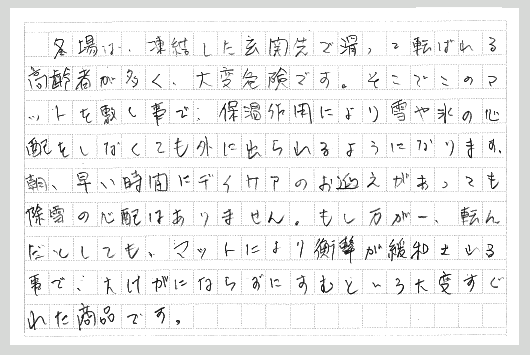 冬場は、凍結した玄関先で滑って転ばれる
高齢者が多く、大変危険です。そこでこのマ
ットを敷く事で、保温作用により雪や氷の心
配をしなくても外に出られるようになります。
朝、早い時間にデイケアのお迎えがあっても
除雪の心配はありません。もし万が一、転ん
だとしても、マットにより衝撃が緩和される
事で、大けがにならずにすむという大変すぐ
れた商品です。